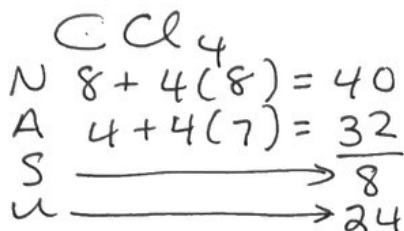 CCl4
N 8 + 4(8) = 40
A 4 + 4(7) = 32
S → 8
U → 24